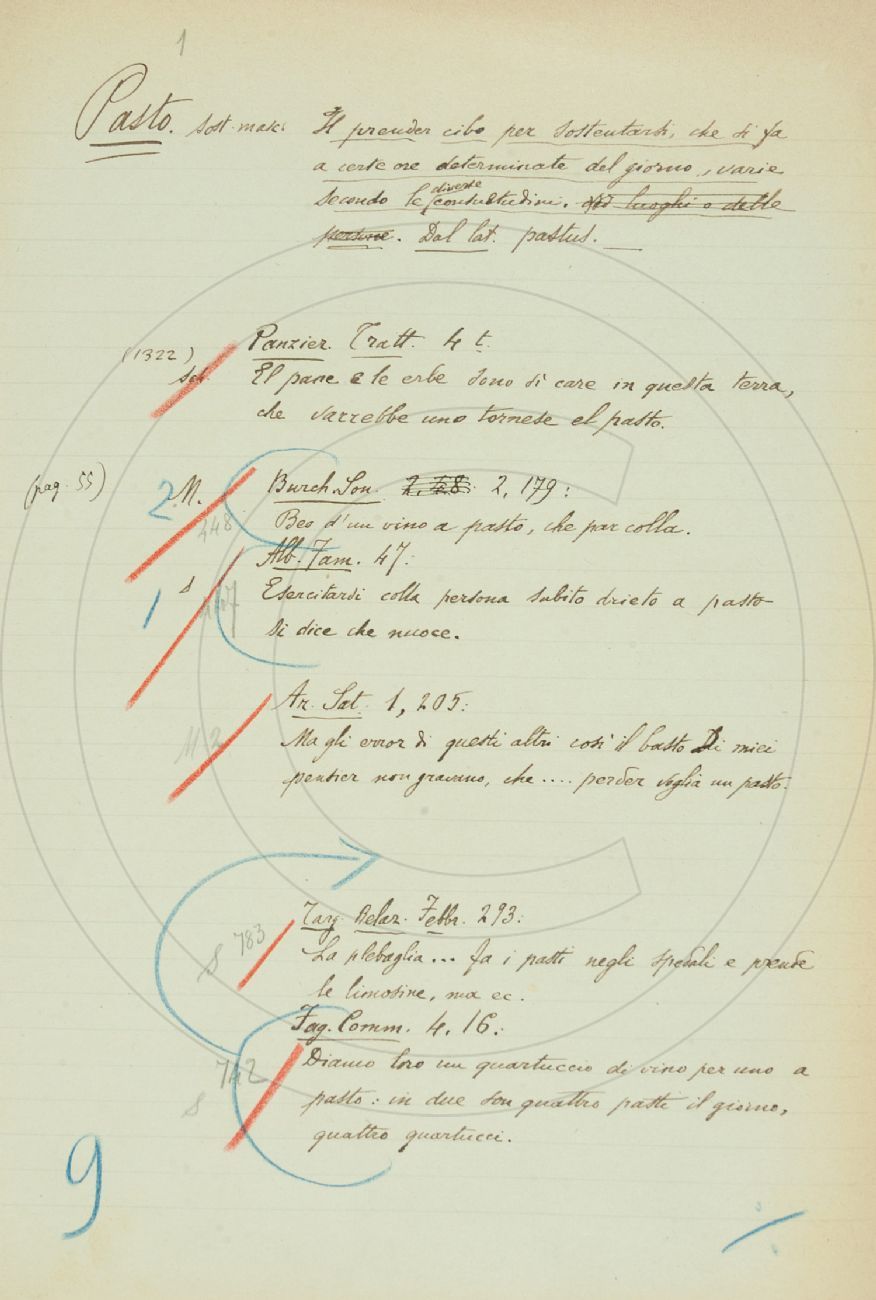 1
Pasto. Sost. masc. Il prender cibo per sostentarsi, che si fa
a certe ore determinate del giorno, varie
secondo le diverse consuetudini. luoghi o delle
persone. Dal lat. pastus.
(1322) Panzier. Tratt. 4 t.
Sch. El pane e le erbe sono sì care in questa terra,
che varrebbe uno tornese el pasto.
(pag. 55) 2 M. Burch. Son. 2, 48. 2, 179:
448 Beo d'un vino a pasto, che par colla.
Alb. Fam. 47:
1 s Esercitarsi colla persona subito drieto a pasto
si dice che nuoce.
Ar. Sat. 1, 205:
M 2 Ma gli error di questi altri così il basto Di miei
pensier non gravano, che .... perder voglia un pasto.
Targ. Relaz. Febbr. 293:
S 783 La plebaglia... fa i pasti negli spedali e prende
le limosine, ma ec.
Fag. Comm. 4. 16.:
S 742 Diamo loro un quartuccio di vino per uno a
pasto: in due son quattro pasti il giorno,
quattro quartucci.
9